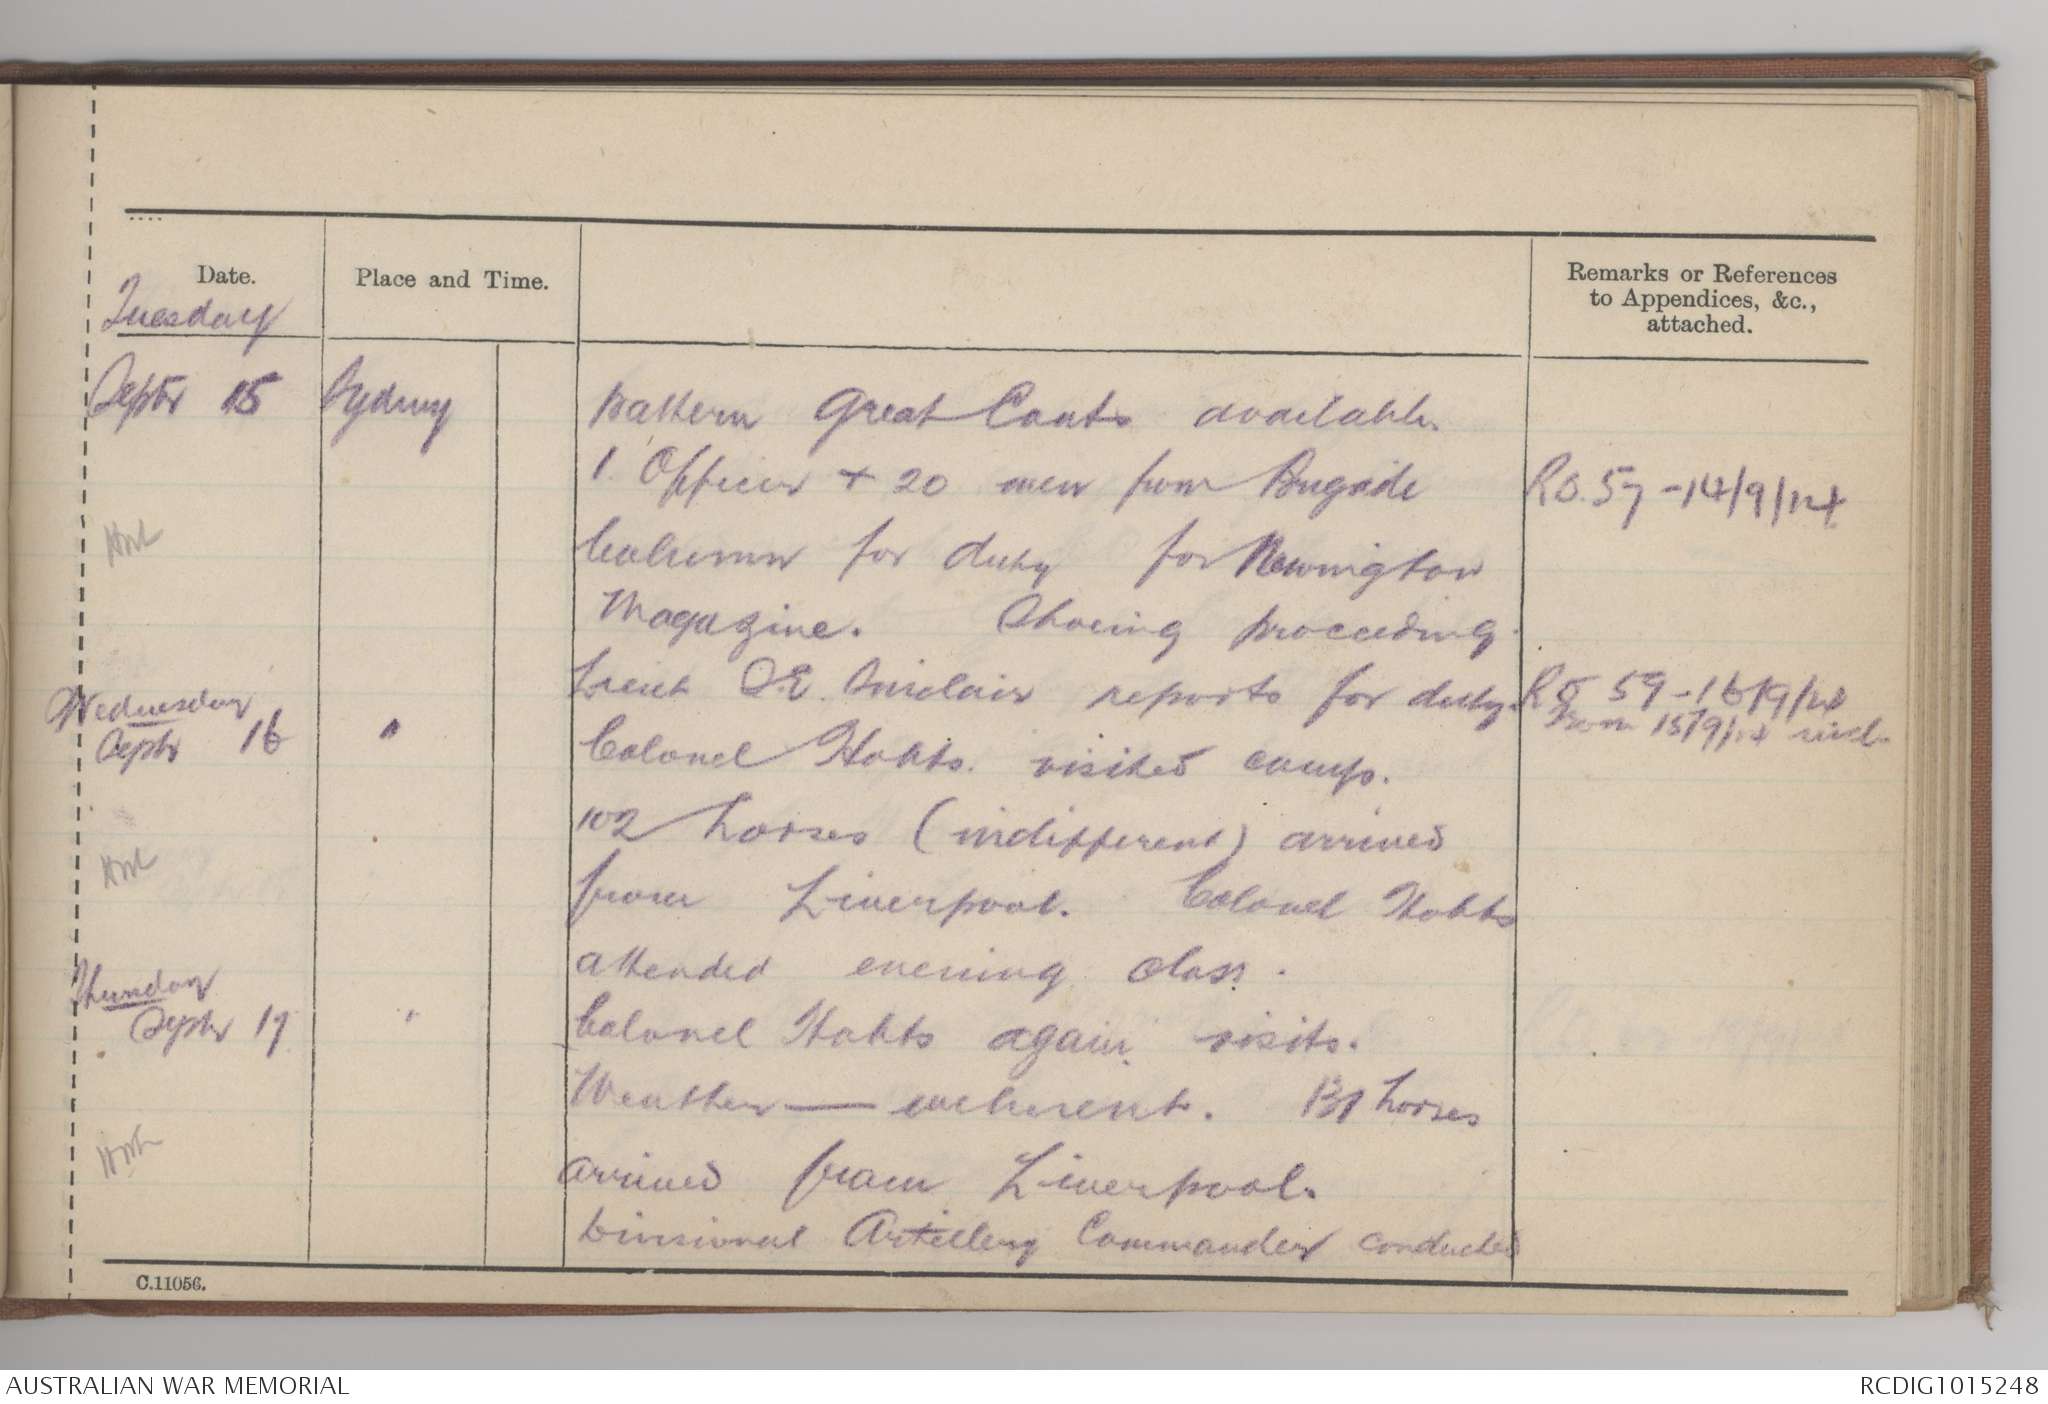 Date.
Place and Time.
Remarks or References
to Appendices, &c.,
attached.
Tuesday
Septr 15
Sydney
pattern Great Coats available.
1 Officer + 20 men from Brigade
R.O. 57 - 14/9/14
Column for duty for Newington
Magazine. Shoeing proceeding.
Lieut Sinclair reports for duty.
RO 59 - 16/9/14
from 15/9/14 incl.
Wednesday
Septr 16
"
Colonel Hobbs visited camp.
102 horses (indifferent) arrived
from Liverpool. Colonel Hobbs
attended evening class.
Thursday
Septr 17
"
Colonel Hobbs again visits.
Weather — inclement. 131 horses
arrived from Liverpool.
Divisional Artillery Commander conducted
C.11056.
AUSTRALIAN WAR MEMORIAL
RCDIG1015248